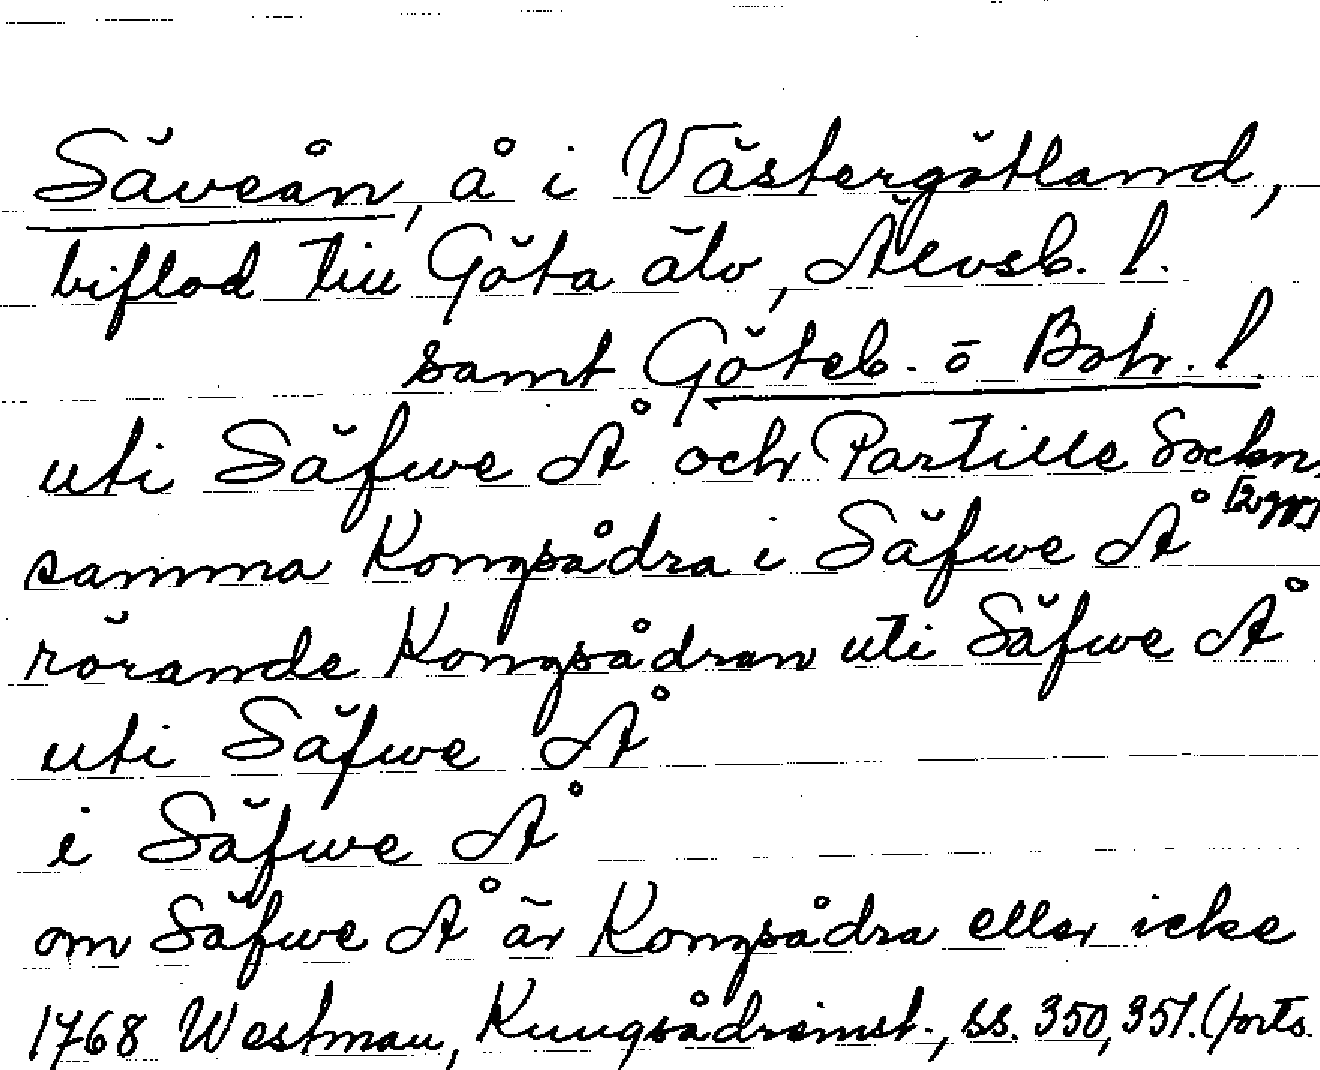 Säveån, å i Västergötland,
biflod till Göta älv, Älvsb. l.
samt Göteb. o Boh. l.
uti Säfwe Å och Partille Sockn,
[2 ggr]
samma Kongsådra i Säfwe Å
rörande Kongsådran uti Säfwe Å
uti Säfwe Å
i Säfwe Å
om Säfwe Å är Kongsådra eller icke
1768 Westman, Kungsådreinst., ss. 350, 351. (forts.